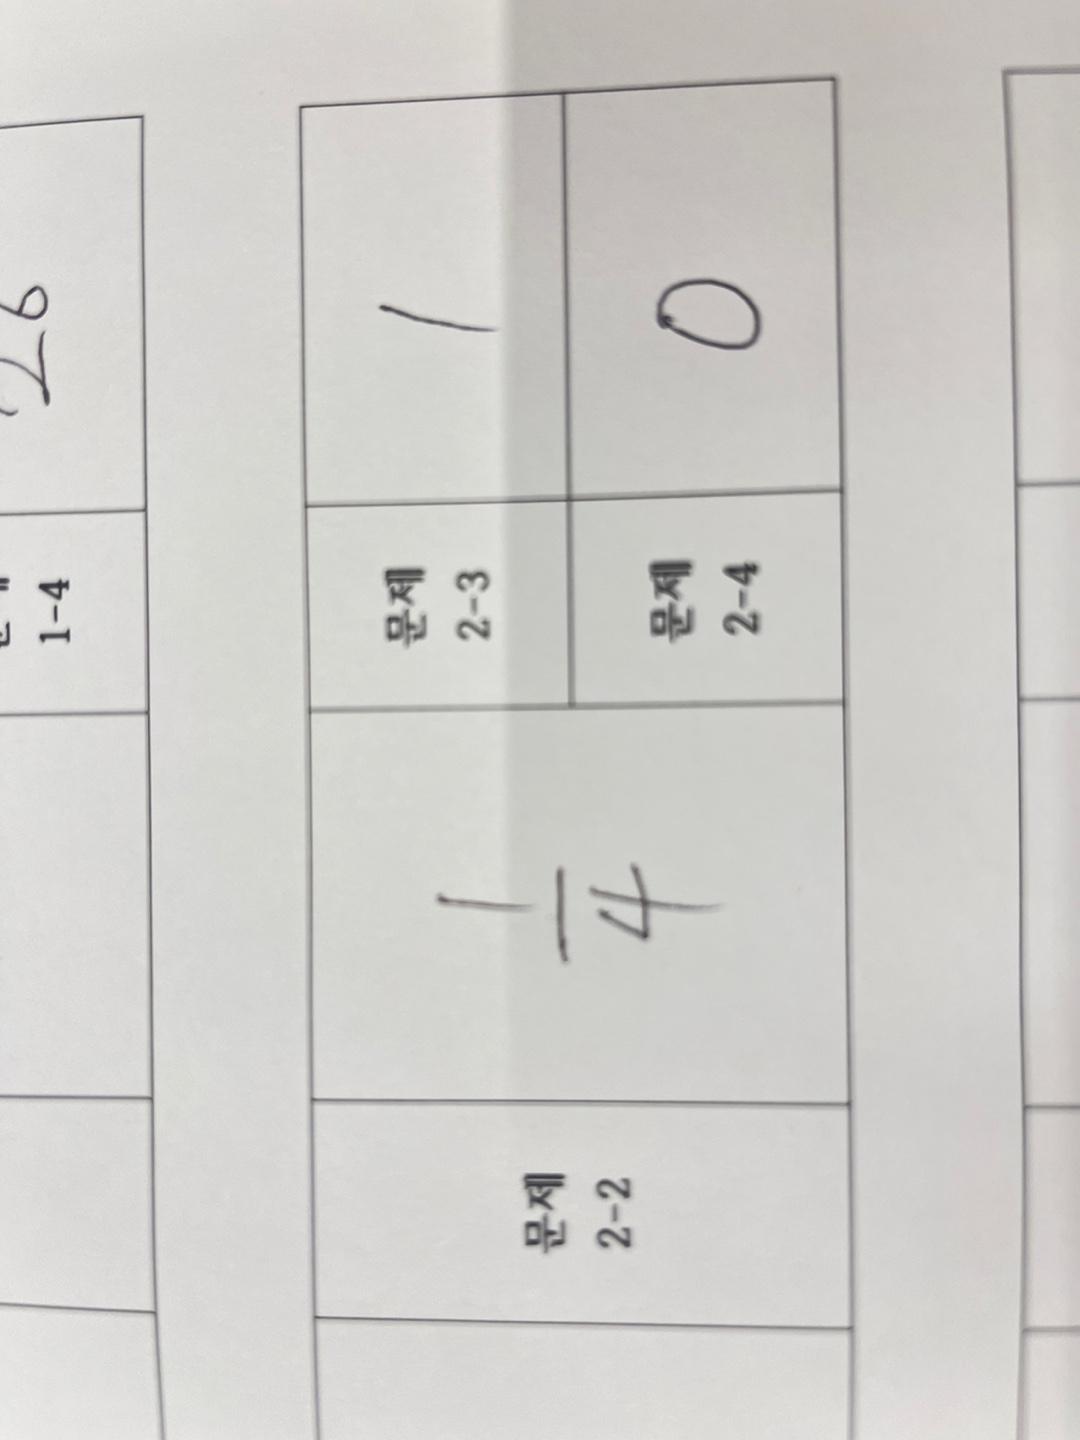 26
1-4
문제
2-2
1/4
문제
2-3
1
문제
2-4
0